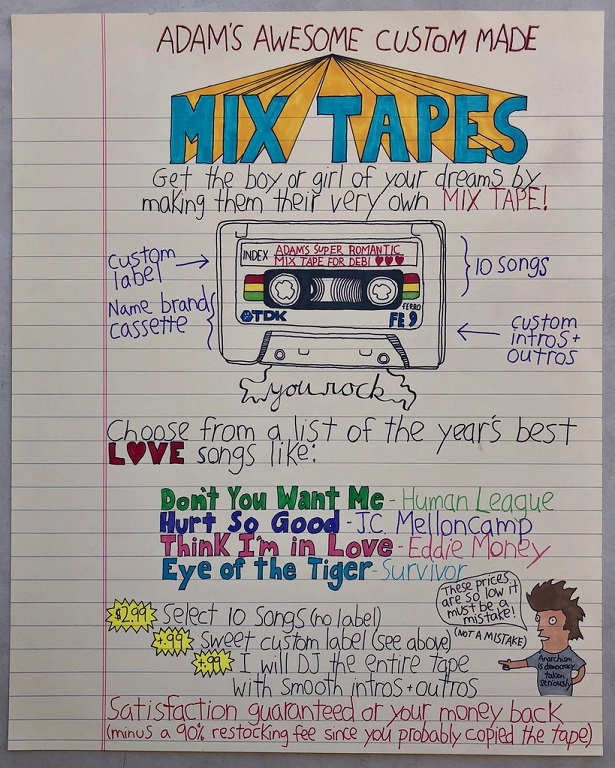 ADAM'S AWESOME CUSTOM MADE
MIX TAPES
Get the boy or girl of your dreams by
making them their very own MIX TAPE!
custom
label
Name brand
cassette
INDEX
ADAM'S SUPER ROMANTIC
MIX TAPE FOR DEBI ♥♥♥
TDK
FERRO
FE 9
10 songs
custom
intros +
outros
you rock
Choose from a list of the year's best
L♥VE songs like:
Don't You Want Me - Human League
Hurt So Good - J.C. Melloncamp
Think I'm in Love - Eddie Money
Eye of the Tiger - Survivor
$2.99 Select 10 Songs (no label)
+.99 Sweet custom label (see above)
+.99 I will DJ the entire tape
with smooth intros + outros
These prices
are so low it
must be a
mistake!
(NOT A MISTAKE)
Anarchism
is democracy
taken
seriously
Satisfaction guaranteed or your money back
(minus a 90% restocking fee since you probably copied the tape)